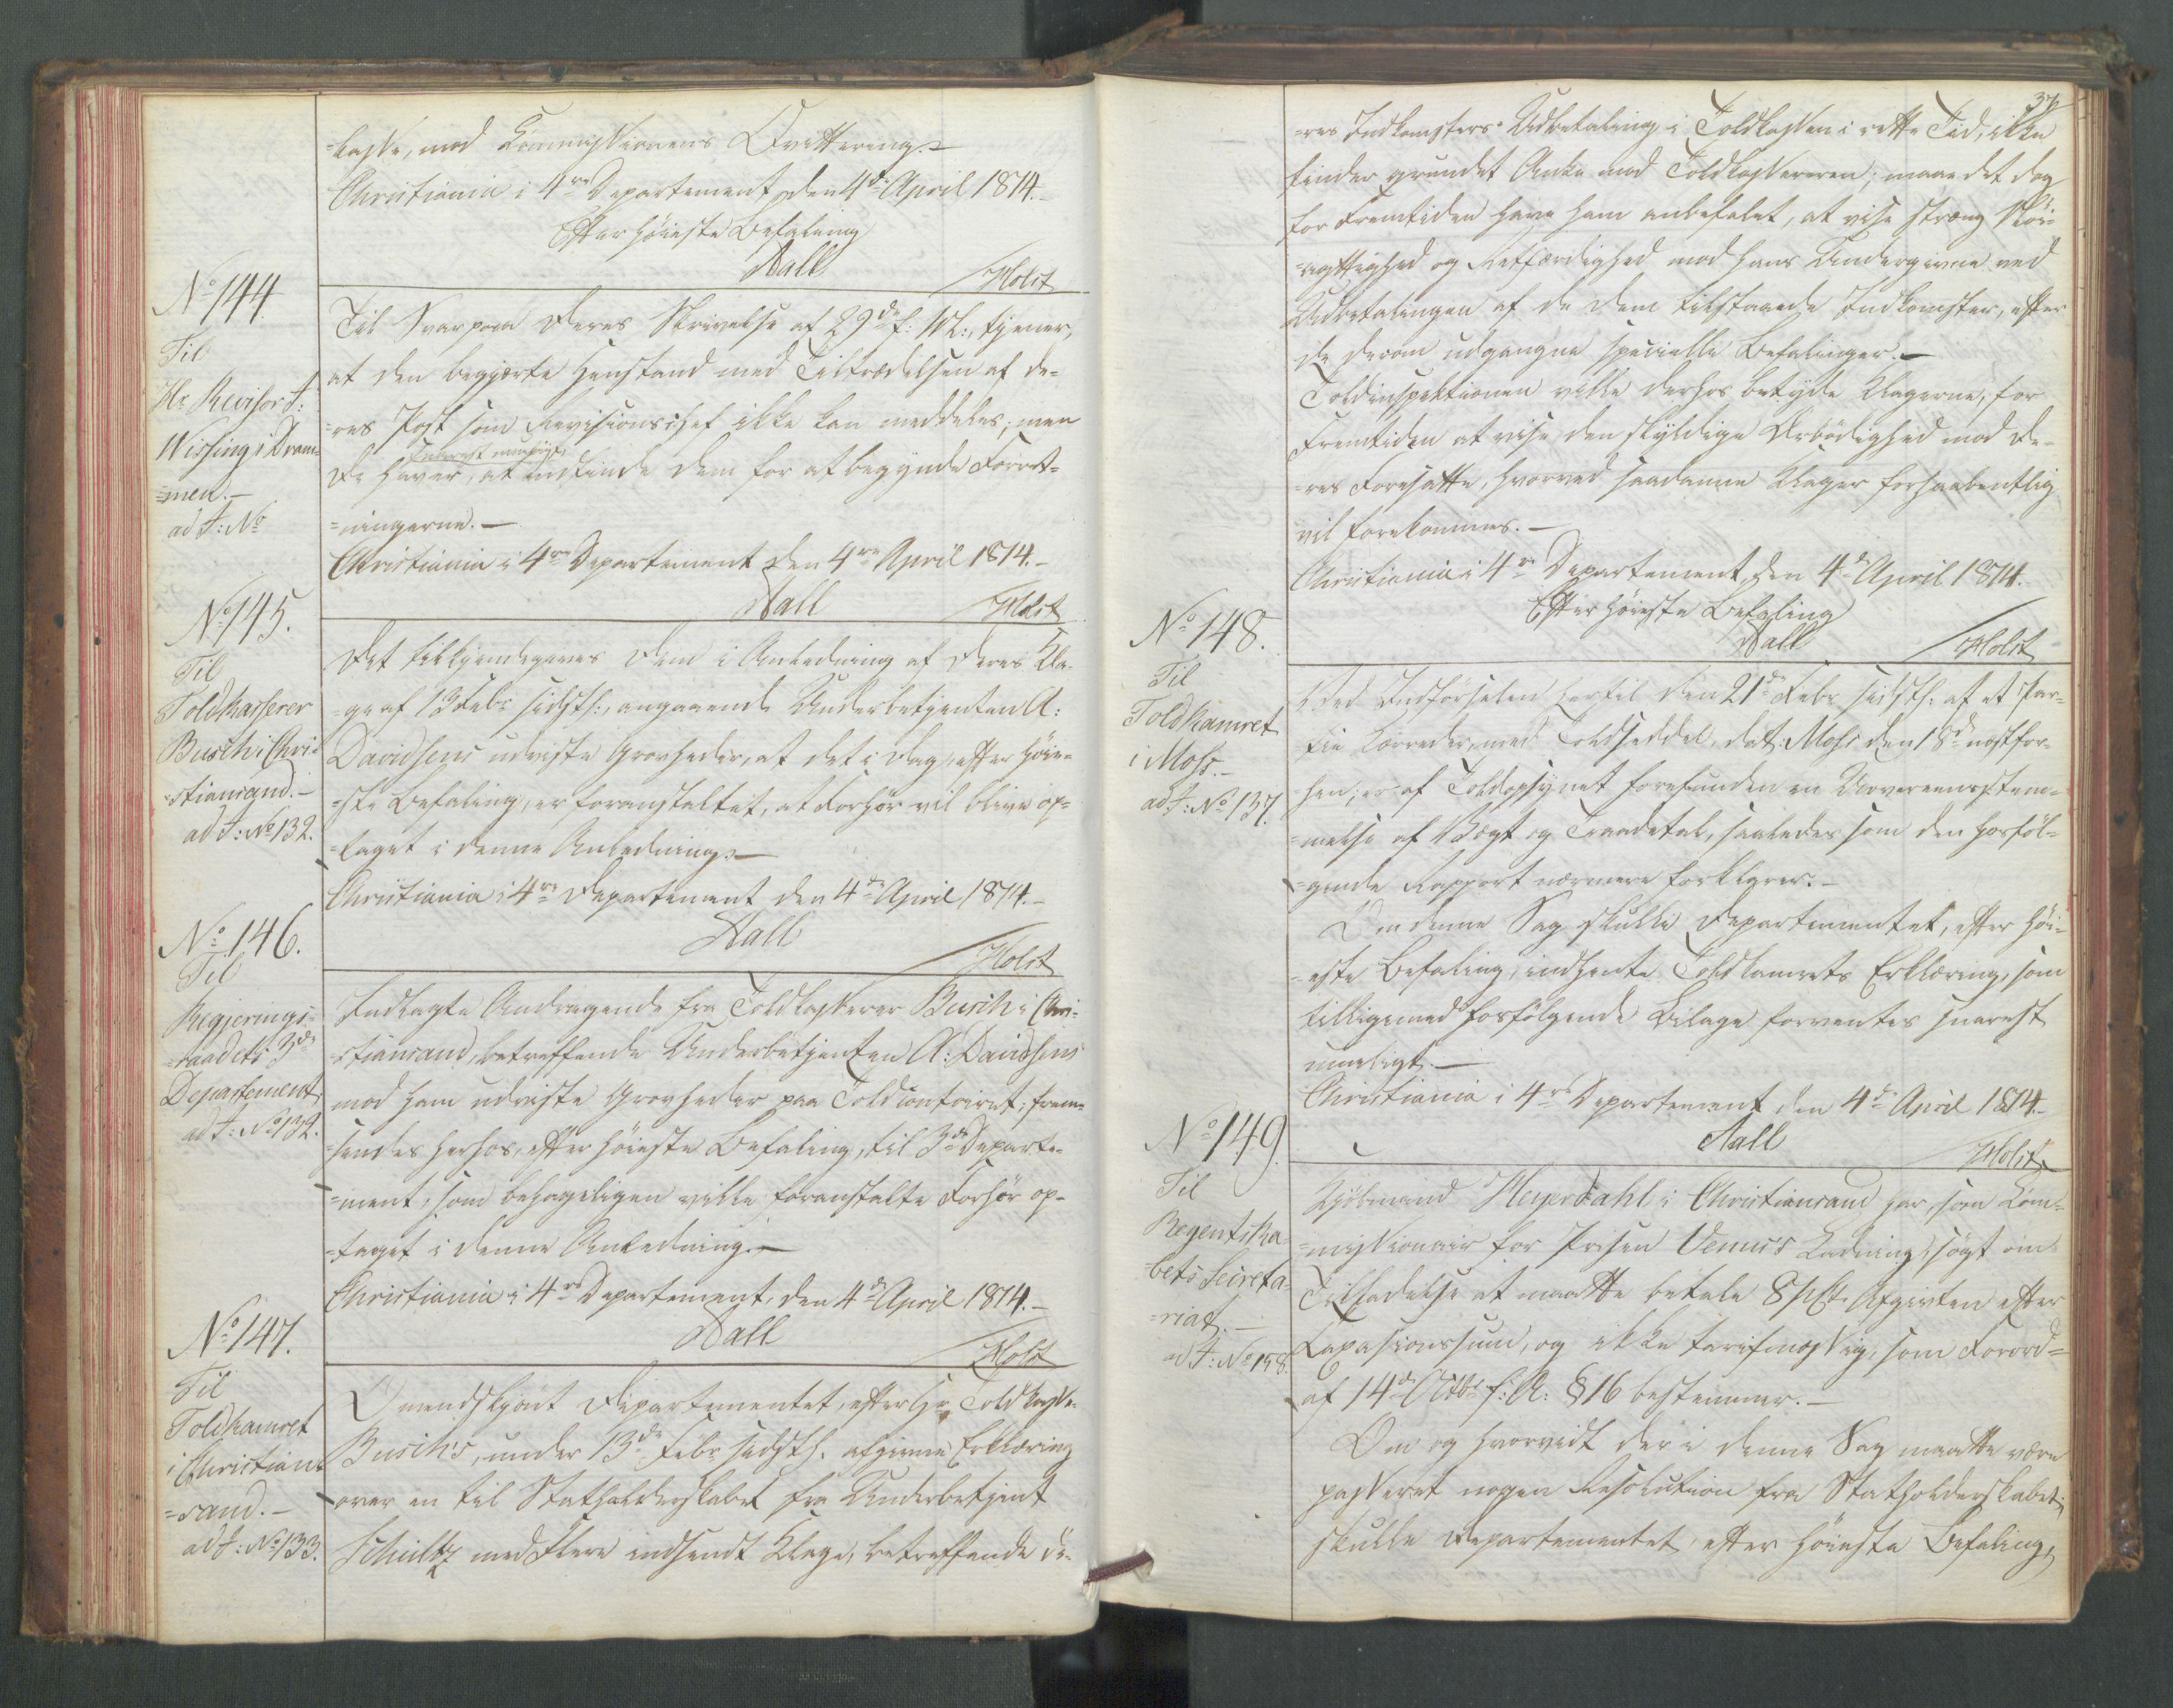 =kasse, mod Commissionens Qvittering.-
Christiania i 4re Departement den 4de April 1814.-
Efter høieste Befaling
Aall
Holst
No 144.
Til
Hr. Revisor J:
Wissing i Dram=
=men.-
ad J: No
Til Svar paa Deres Skrivelse af 29de f: M:, tjener,
at den begjærte Henstand med Tiltrædelsen af De=
=res Post som Revisionschef ikke kan meddeles; men
snarest mueligt,
De haver, at indfinde Dem for at begynde Forret=
=ningerne.-
Christiania i 4re Departement den 4re April 1814.-
Aall
Holst
No 145.
Til
Toldkasserer
Busch i Chri=
=stiansand.-
ad J: No 132.
Det tilkjendegives Dem i Anledning af Deres Kla=
=ge af 13 Febr sidsth:, angaaende Underbetjenten A:
Davidsens udviste Grovheder, at det i Dag, efter høie=
=ste Befaling, er foranstaltet, at Forhør vil blive op=
=taget i denne Anledning.-
Christiania i 4re Departement den 4de April 1814.-
Aall
Holst
No 146.
Til
Regjerings=
=raadets 3de
Departement
ad J: No 132.
Indlagte Andragende fra Toldkasserer Busch i Chri=
=stiansand, betreffende Underbetjenten A: Davidsens
mod ham udviste Grovheder paa Toldcontoiret, frem=
=sendes herhos, efter høieste Befaling, til 3de Departe=
=ment, som behageligen ville foranstalte Forhør op=
=taget i denne Anledning.-
Christiania i 4re Departement, den 4de April 1814.-
Aall
Holst
No 147.
Til
Toldkamret
i Christian=
=sand.-
ad J: No 133.
Omendskjønt Departementet, efter Hr Toldkasse.
Busch's, under 13de Febr sidsth. afgivne Erklæring
over en til Statholderskabet fra Underbetjent
Schultz med Flere indsendt Klage, betreffende de=
37
=res Indkomsters Udbetaling i Toldkassen i rette Tid, ikke
finder grundet Anke mod Toldkassereren; maae det dog
for Fremtiden have ham anbefalet, at vise streng Nøi=
=agtighed og Retfærdighed mod hans Undergivne ved
Udbetalingen af de dem tilstaaede Indkomster, efter
de derom udgangne specielle Befalinger.-
Toldinspektionen ville derhos betyde Klagerne, for
Fremtiden at vise den skyldige Ærbødighed mod de=
=res Foresatte, hvorved saadanne Klager forhaabentlig
vil forekommes.-
Christiania i 4re Departement, den 4de April 1814.
Efter høieste Befaling
Aall
Holst
No 148.
Til
Toldkamret
i Moss.-
ad J: No 137.
Ved Indførselen hertil den 21de Febr sidsth: af et Par=
tie Varer, med Toldseddel, dat: Moss den 18de næstfor=
hen, er af Toldopsynet forefunden en Uovereensstem=
=melse af Vægt og Traadetal, saaledes som den hosføl=
=gende Rapport nærmere forklarer.-
Om denne Sag skulle Departementet, efter høi=
=este Befaling, indhente Toldkamrets Erklæring, som
tilligemed hosfølgende Bilage forventes snarest
mueligt.-
Christiania i 4re Departement den 4de April 1814.-
Aall
Holst
No 149.
Til
Regentska=
=bets Secreta=
=riat.-
ad J: No 158.
Kjøbmand Heyerdahl i Christiansand har, som Com=
=missionair for Prisen Venus's Ladning, søgt om
Tilladelse at maatte betale 8 pCt. Afgivten efter
Taxasionssum, og ikke tarifmæssig, som Forord=
af 14de Octbr f: A: § 16 bestemmer.-
Om og hvorvidt der i denne Sag maatte være
passeret nogen Resolution fra Statholderskabet,
skulle Departementet, efter høieste Befaling,